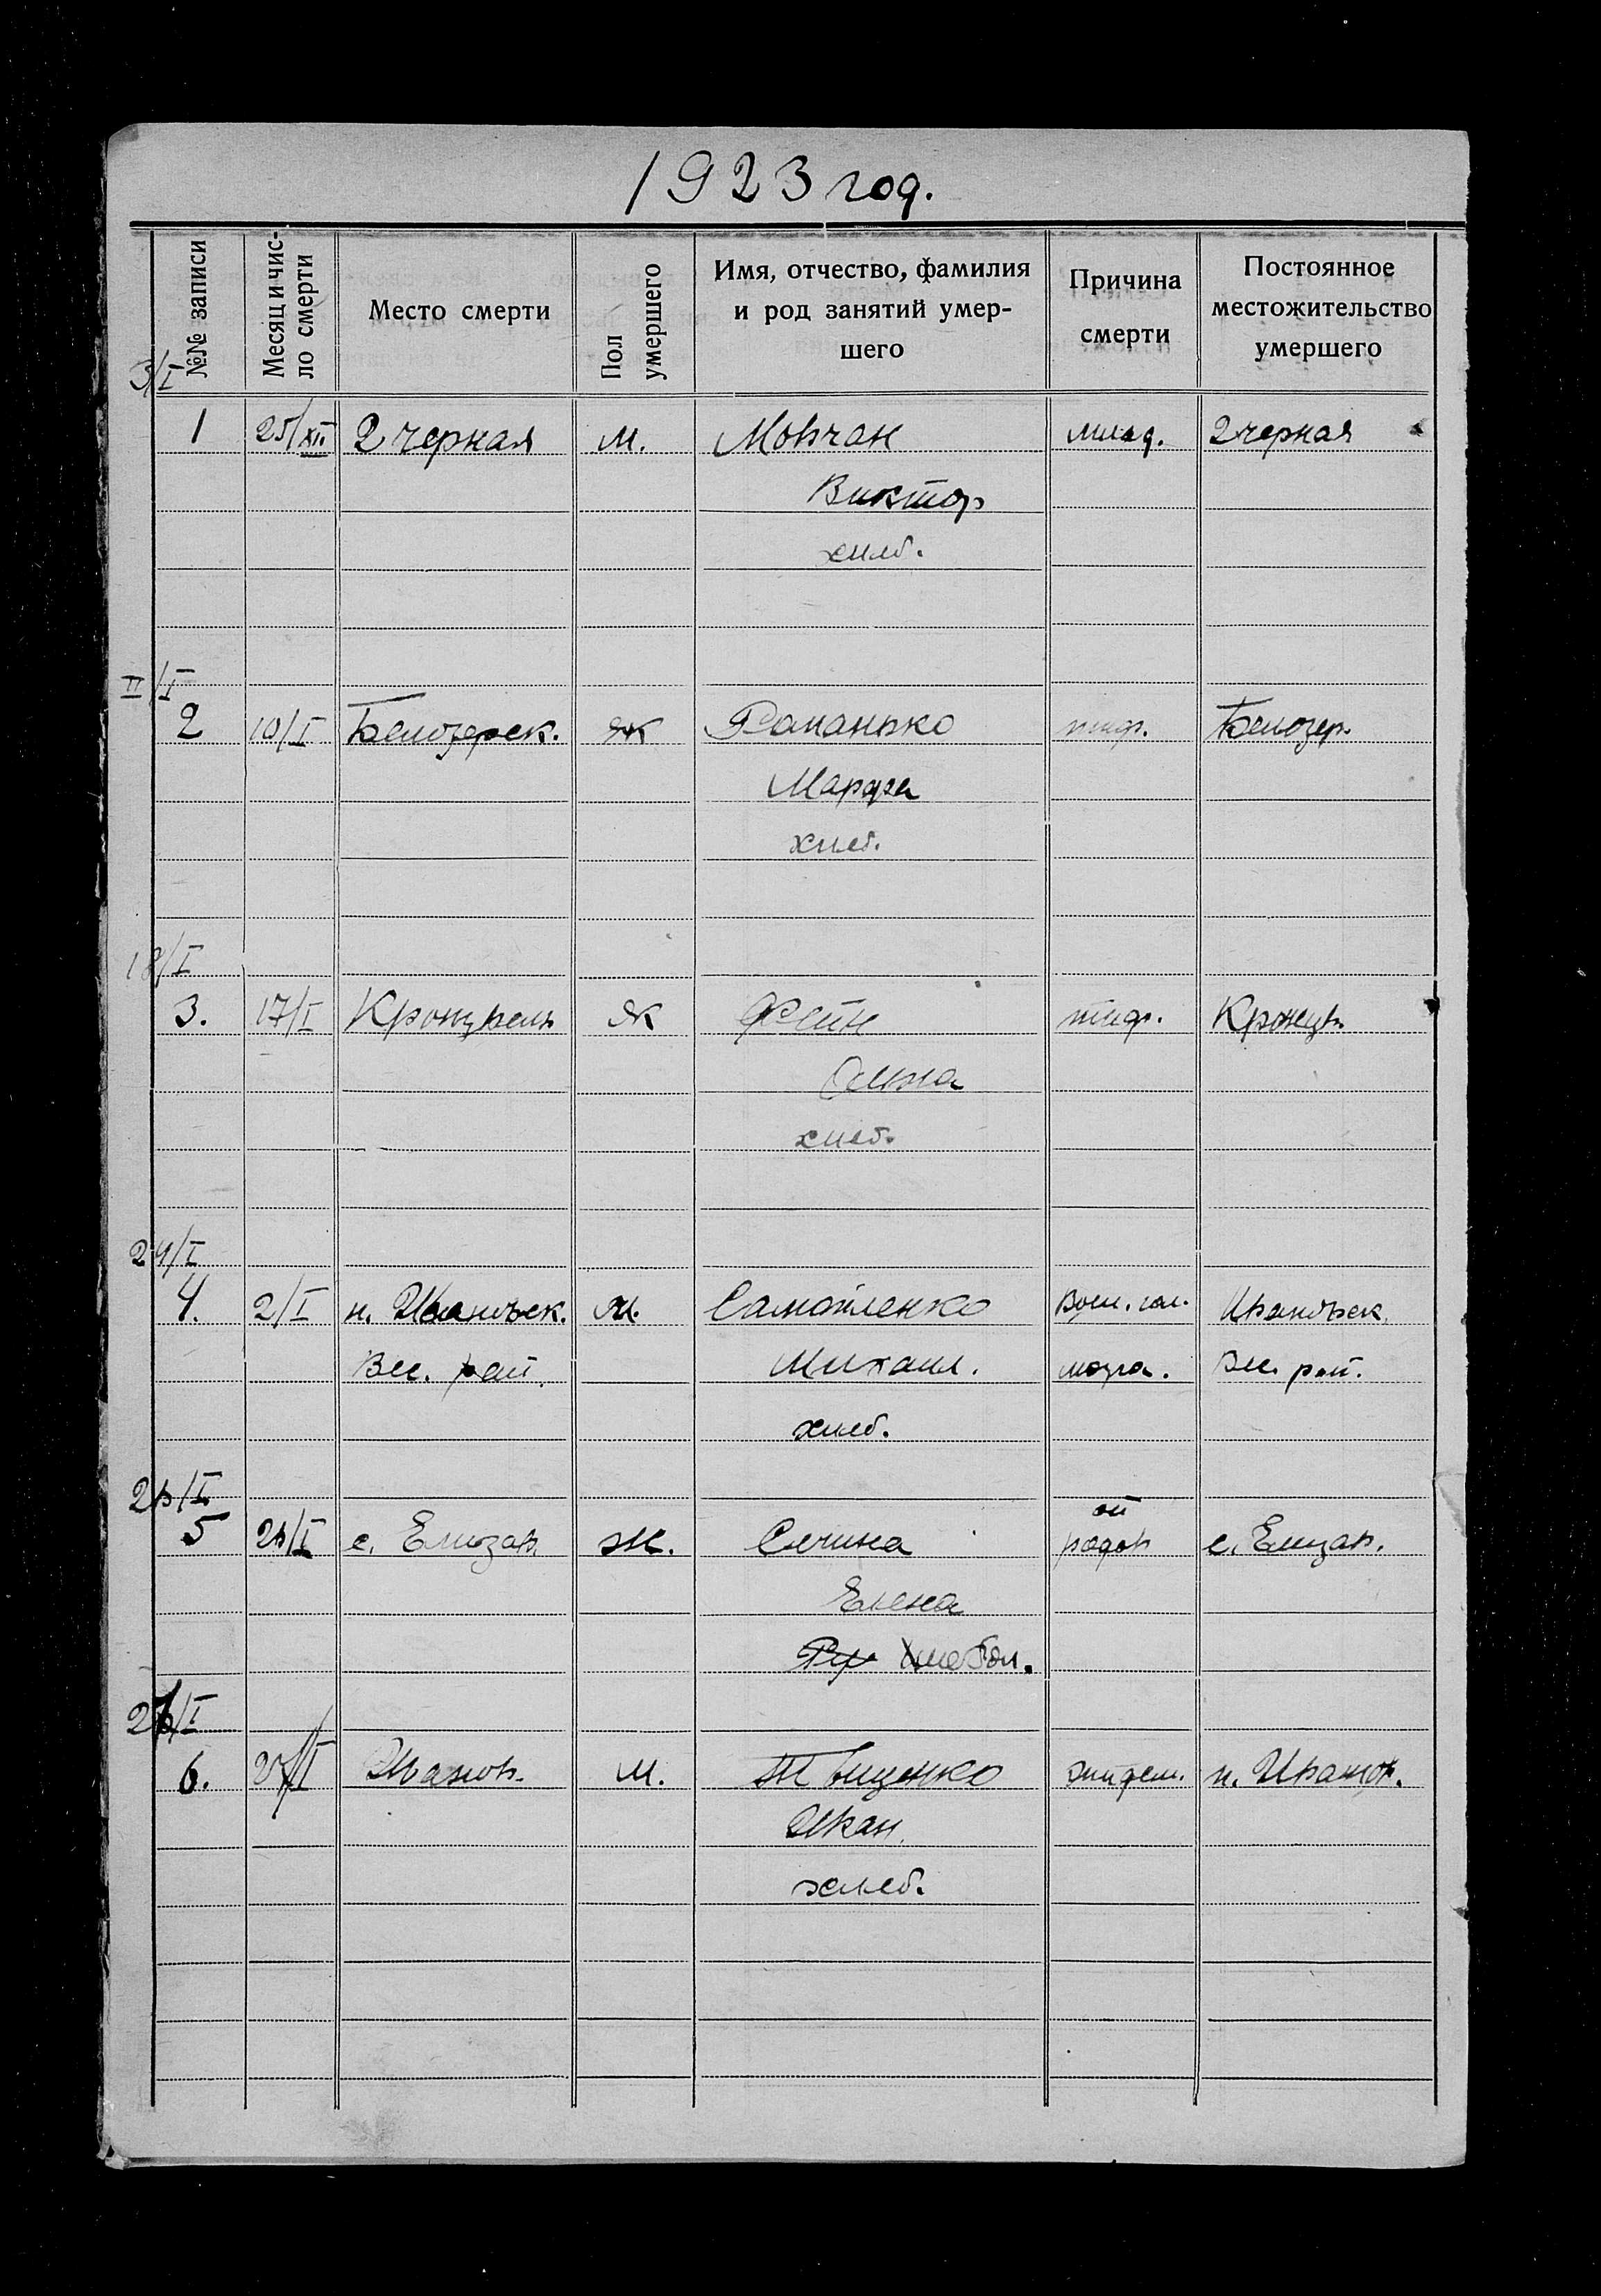 1923 год.
№№ записи
Месяц и чис-
ло смерти
Место смерти
Пол
умершего
Имя, отчество, фамилия
и род занятий умер-
шего
Причина
смерти
Постоянное
местожительство
умершего
3/I
1 25/XII 2 черная м. Мовчан млад. 2 черная
Виктор
хлеб.
II/I
2 10/I Белозерск. ж Романько тиф. Белозер.
Марфа
хлеб.
18/I
3. 17/I ж тиф.
хлеб.
24/I
4. 2/I н. Ивановск. м. Самойленко Восп. гол. Ивановск.
Вес. рай. Михаил. мозга. Вес. рай.
хлеб.
/I
5 /I с. Елизав. ж. от родов с. Елизав.
Елена
хлебоп.
/I
6. /I Иванов. м. эпидем. н. Иванов.
Иван.
хлеб.